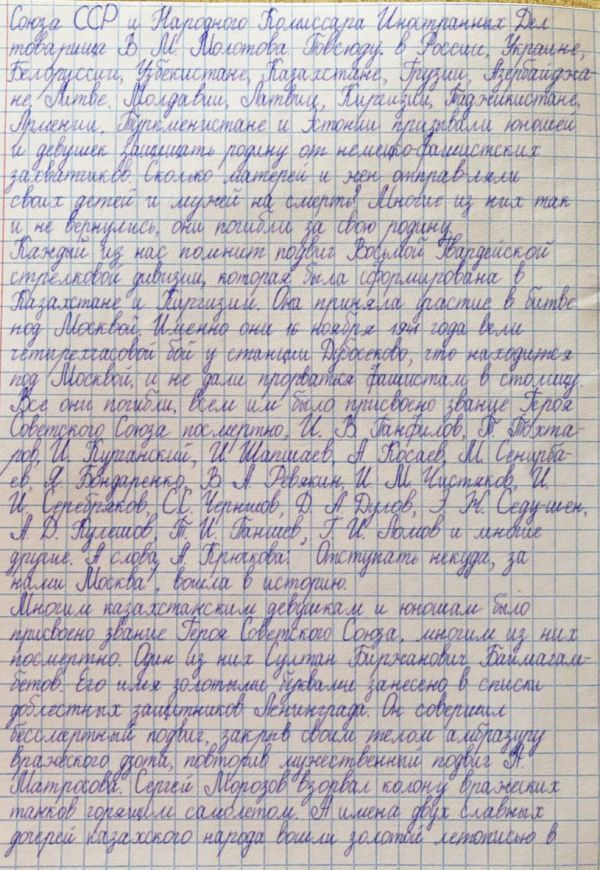 Союза ССР и Народного Комиссара Иностранных Дел
товарища В. М. Молотова. Повсюду: в России, Украине,
Белоруссии, Узбекистане, Казахстане, Грузии, Азербайджа-
не, Литве, Молдавии, Латвии, Киргизии, Таджикистане,
Армении, Туркменистане и Эстонии призывали юношей
и девушек защищать родину от немецко-фашистских
захватчиков. Сколько матерей и жен отправ-ляли
своих детей и мужей на смерть! Многие из них так
и не вернулись, они погибли за свою родину.
Каждый из нас помнит подвиг Восьмой Гвардейской
стрелковой дивизии, которая была сформирована в
Казахстане и Киргизии. Она приняла участие в битве
под Москвой. Именно они 16 ноября 1941 года вели
четырехчасовой бой у станции Дубосеково, что находится
под Москвой, и не дали прорваться фашистам в столицу.
Все они погибли, всем им было присвоено звание Героя
Советского Союза посмертно, И. В. Панфилов, Т. Тохта-
ров, И. Курганский, И. Шапшаев, А. Косаев, М. Сенгирба-
ев, Я. Бондаренко, В. А. Ревякин, И. М. Чистяков, И.
И. Серебряков, С.С. Чернышов, Д. А. Дугов, Э. Ж. Седу-шен,
А. Д. Кулешов, Т. И. Ганшев, Г. И. Ломов и многие
другие. А слова А. Крючкова: " Отступать некуда, за
нами Москва", вошла в историю.
Многим казахстанским девушкам и юношам было
присвоено звание Героя Советского Союза, многим из них
посмертно. Один из них Султан Биржанович Баймагам-
бетов. Его имя золотыми буквами занесено в списки
доблестных защитников Ленинграда. Он совершил
бессмертный подвиг, закрыв своим телом амбразуру
вражеского дзота, повторив мужественный подвиг А.
Матросова. Сергей Морозов взорвал колону вражеских
танков горящим самолетом. А имена двух славных
дочерей казахского народа вошли золотой летописью в